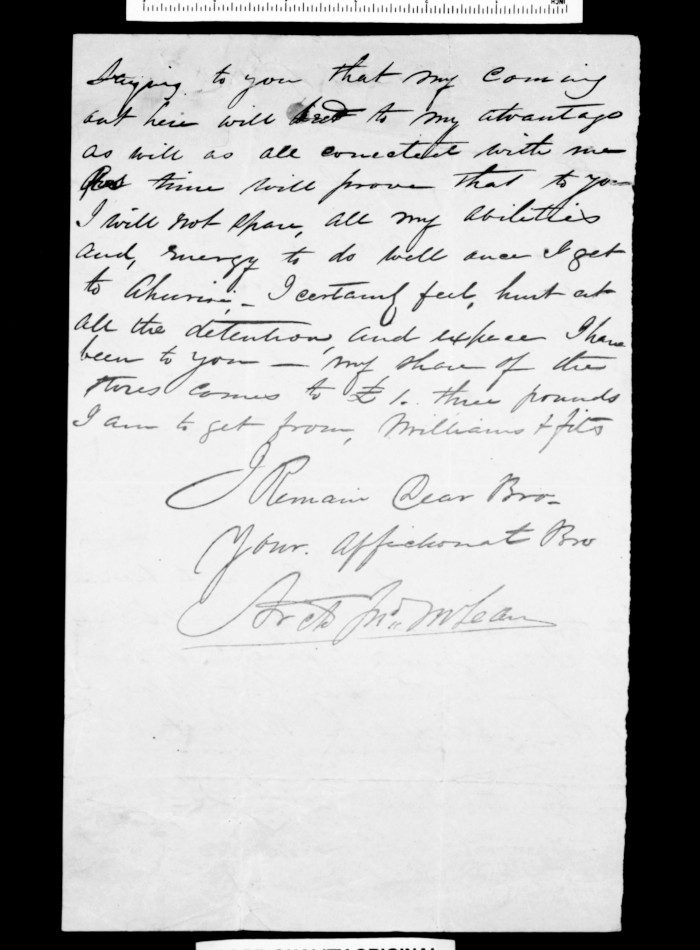 Saying to you that my coming
out here will to my atvantage
as will as all conected with me
time will prove that to you
I will not spare, all my abilities
and, energy to do well once I get
to Ahuriri, - I certainly feel, hurt at
all the detention, and expece I have
been to you — my share of the
stores comes to £ 6. three pounds
I am to get from, Williams & fits
I Remain Dear Bro-
Your. affectionat Bro
Archd Jno. McLean